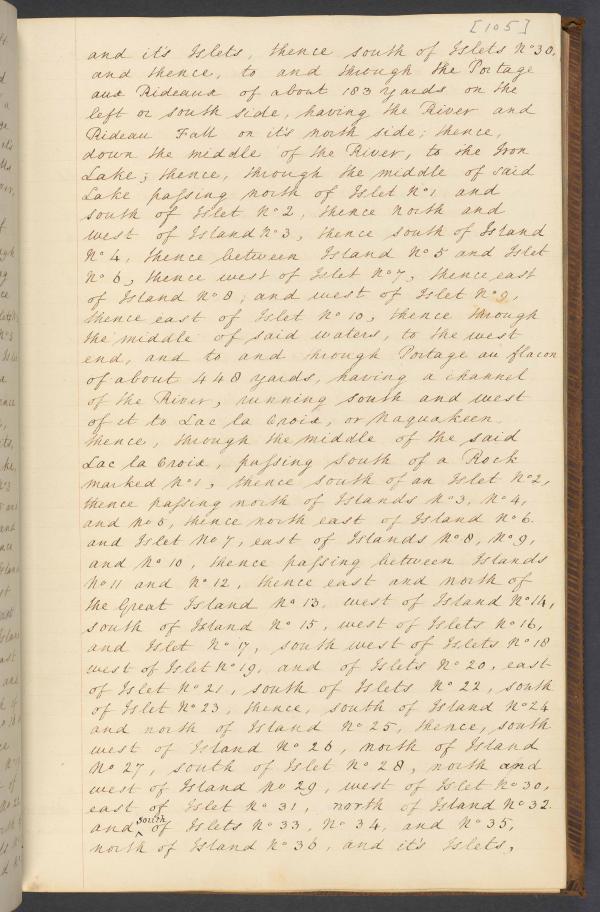 [105]
and it's Islets, thence south of Islets No 30,
and thence, to and through the Portage
aux Rideaux of about 183 yards on the
left or south side, having the River and
Rideau Fall on it's north side; thence,
down the middle of the River, to the Iron
Lake; thence, through the middle of said
Lake passing north of Islet No 1 and
south of Islet No 2, thence north and
west of Island No 3, thence south of Island
No 4, thence between Island No 5 and Islet
No 6, thence west of Islet No 7, thence east
of Island No 8; and west of Islet No 9,
thence east of Islet No 10, thence through
the middle of said waters, to the west
end, and to and through Portage au flacon
of about 448 yards, having a channel
of the River, running south and west
of it to Lac la Croix, or Naquakeen
thence, through the middle of the said
Lac la Croix, passing south of a Rock
marked No 1, thence south of an Islet No 2,
thence passing north of Islands No 3, No 4,
and No 5, thence north east of Island No 6.
and Islet No 7, east of Islands No 8, No 9,
and No 10, thence passing between Islands
No 11 and No 12, thence east and north of
the Great Island No 13. west of Island No 14,
south of Island No 15, west of Islets No 16,
and Islet No 17, south west of Islets No 18
west of Islet No 19, and of Islets No 20, east
of Islet No 21, south of Islets No 22, south
of Islet No 23, thence, south of Island No 24
and north of Island No 25, thence, south
west of Island No 26, north of Island
No 27, south of Islet No 28, north and
west of Island No 29, west of Islet No 30,
east of Islet No 31, north of Island No 32.
and south of Islets No 33, No 34, and No 35,
north of Island No 36, and it's Islets,